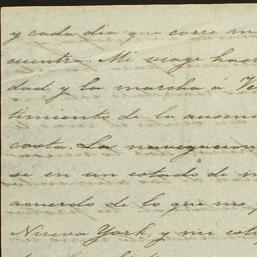 y cada dia que corre m
cuentra. Mi viage has
dad y la marcha á Te
timiento de la ausen
costa. La navegacion
sé en un estado de in
acuerdo de lo que me p
Nueva York, y mi est